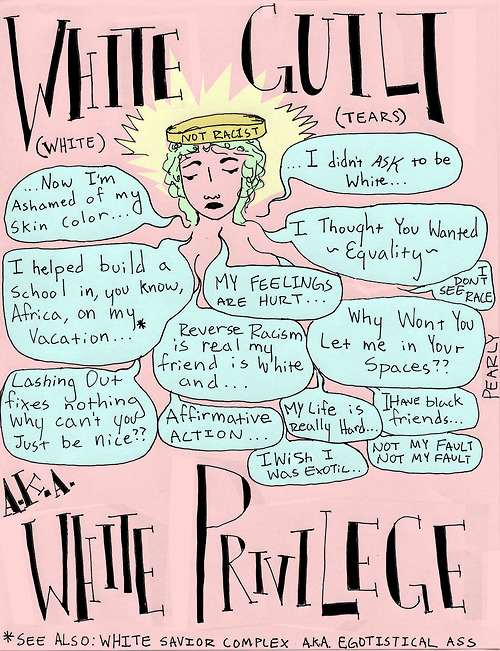 WHITE GUILT
(WHITE)
(TEARS)
NOT RACIST
...I didn't ASK to be
White...
...Now I'm
Ashamed of my
Skin Color...
I Thought You Wanted
~Equality~
I
DON'T
SEE RACE
I helped build a
School in, you know,
Africa, on my
Vacation...*
MY FEELINGS
ARE HURT...
Reverse Racism
is real my
friend is White
and...
Why Wont You
Let me in Your
Spaces??
PEARLY
Lashing Out
fixes nothing
Why can't you
Just be nice??
Affirmative
ACTION...
My Life is
Really Hard...
I HAVE black
friends...
I Wish I
Was EXOTIC..
NOT MY FAULT
NOT MY FAULT
A.K.A.
WHITE PRIVILEGE
*SEE ALSO: WHITE SAVIOR COMPLEX A.K.A. EGOTISTICAL ASS